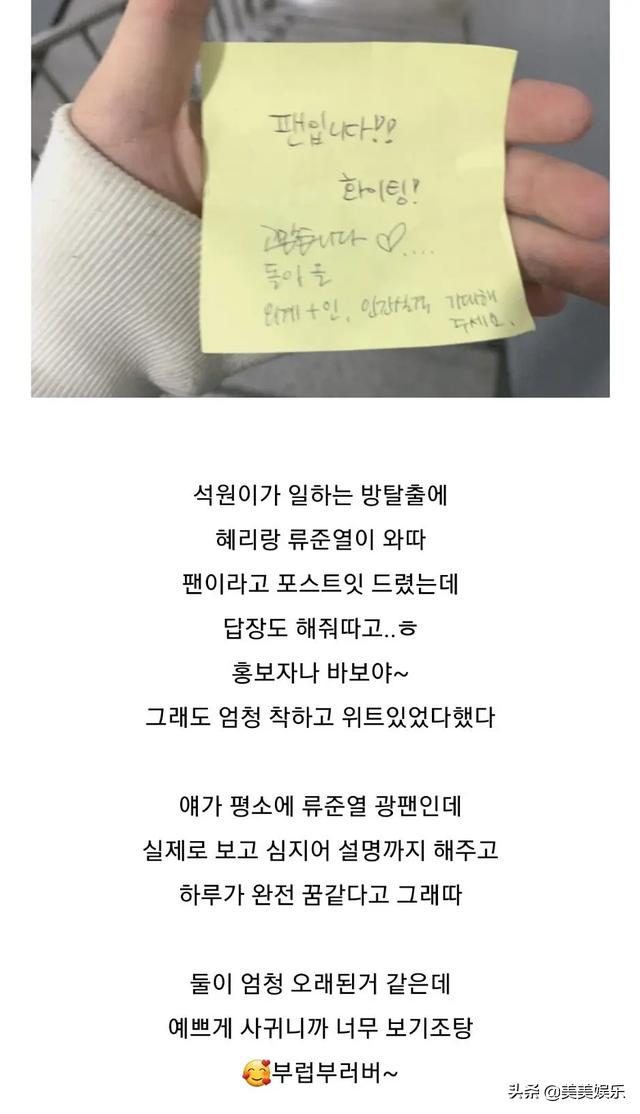 팬입니다!!
화이팅!
고맙습니다 ♡....
외계+인, 인간실격 기대해
주세요.
석원이가 일하는 방탈출에
혜리랑 류준열이 와따
팬이라고 포스트잇 드렸는데
답장도 해줘따고..ㅎ
홍보자나 바보야~
그래도 엄청 착하고 위트있었다했다
얘가 평소에 류준열 광팬인데
실제로 보고 심지어 설명까지 해주고
하루가 완전 꿈같다고 그래따
둘이 엄청 오래된거 같은데
예쁘게 사귀니까 너무 보기조탕
🥰부럽부러버~
头条 @美美娱乐